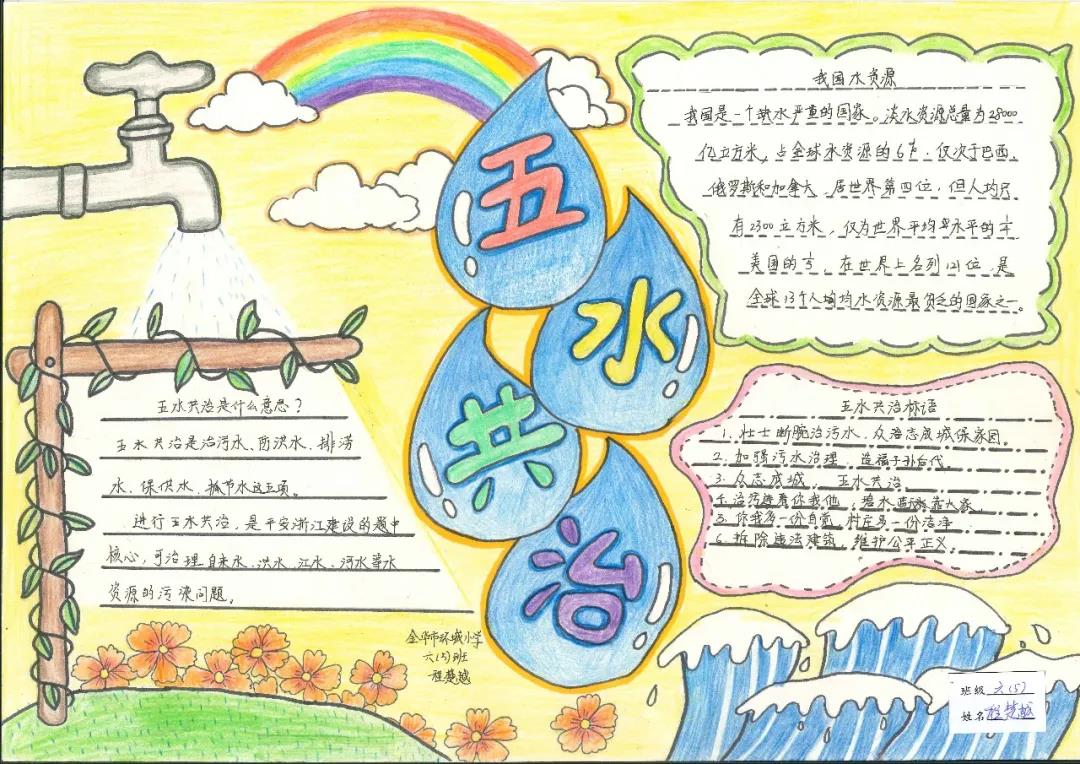 五水共治
我国水资源
我国是一个缺水严重的国家。淡水资源总量为28000
亿立方米,占全球水资源的6%,仅次于巴西、
俄罗斯和加拿大,居世界第四位,但人均只
有2300立方米,仅为世界平均水平的
美国的 在世界上名列121位,是
全球13个人均水资源最贫乏的国家之一。
五水共治是什么意思?
五水共治是治污水、防洪水、排涝
水、保供水、抓节水这五项。
进行五水共治,是平安浙江建设的题中
核心,可治理自来水、洪水、江水、河水等水
资源的污染问题。
五水共治标语
1.壮士断腕治污水,众治志成城保家园。
2.加强污水治理,造福子孙后代。
3.众志成城,五水共治。
4.治污 你我他,碧水 靠大家。
5.你我多一份自觉,村庄多一份洁净
6.拆除违法建筑,维护公平正义。
金华市环城小学
六(5)班
程楚越
班级 六(5)
姓名 程楚越